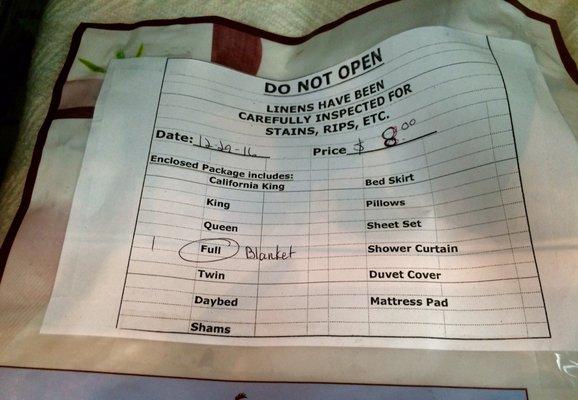 DO NOT OPEN
LINENS HAVE BEEN
CAREFULLY INSPECTED FOR
STAINS, RIPS, ETC.
Date: 12-29-16 Price $ 8.00
Enclosed Package includes:
California King Bed Skirt
King Pillows
Queen Sheet Set
1 Full Blanket Shower Curtain
Twin Duvet Cover
Daybed Mattress Pad
Shams